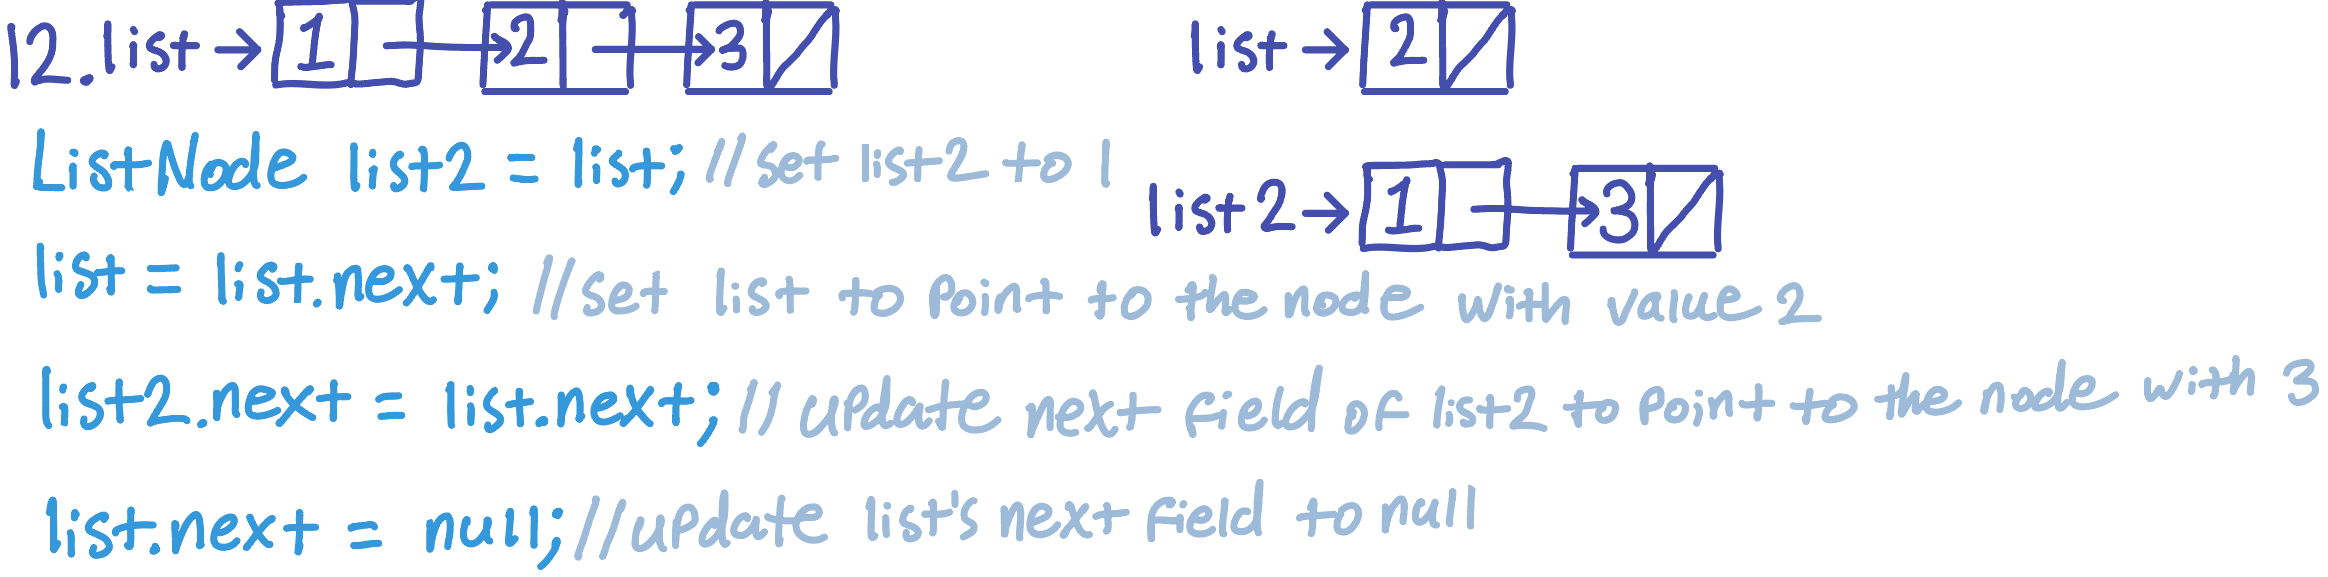 12. list → 1 2 3 list → 2
ListNode list2 = list; //set list2 to 1
list2 → 1 3
list = list.next; //set list to point to the node with value 2
list2.next = list.next; // update next field of list2 to point to the node with 3
list.next = null; //update list's next field to null